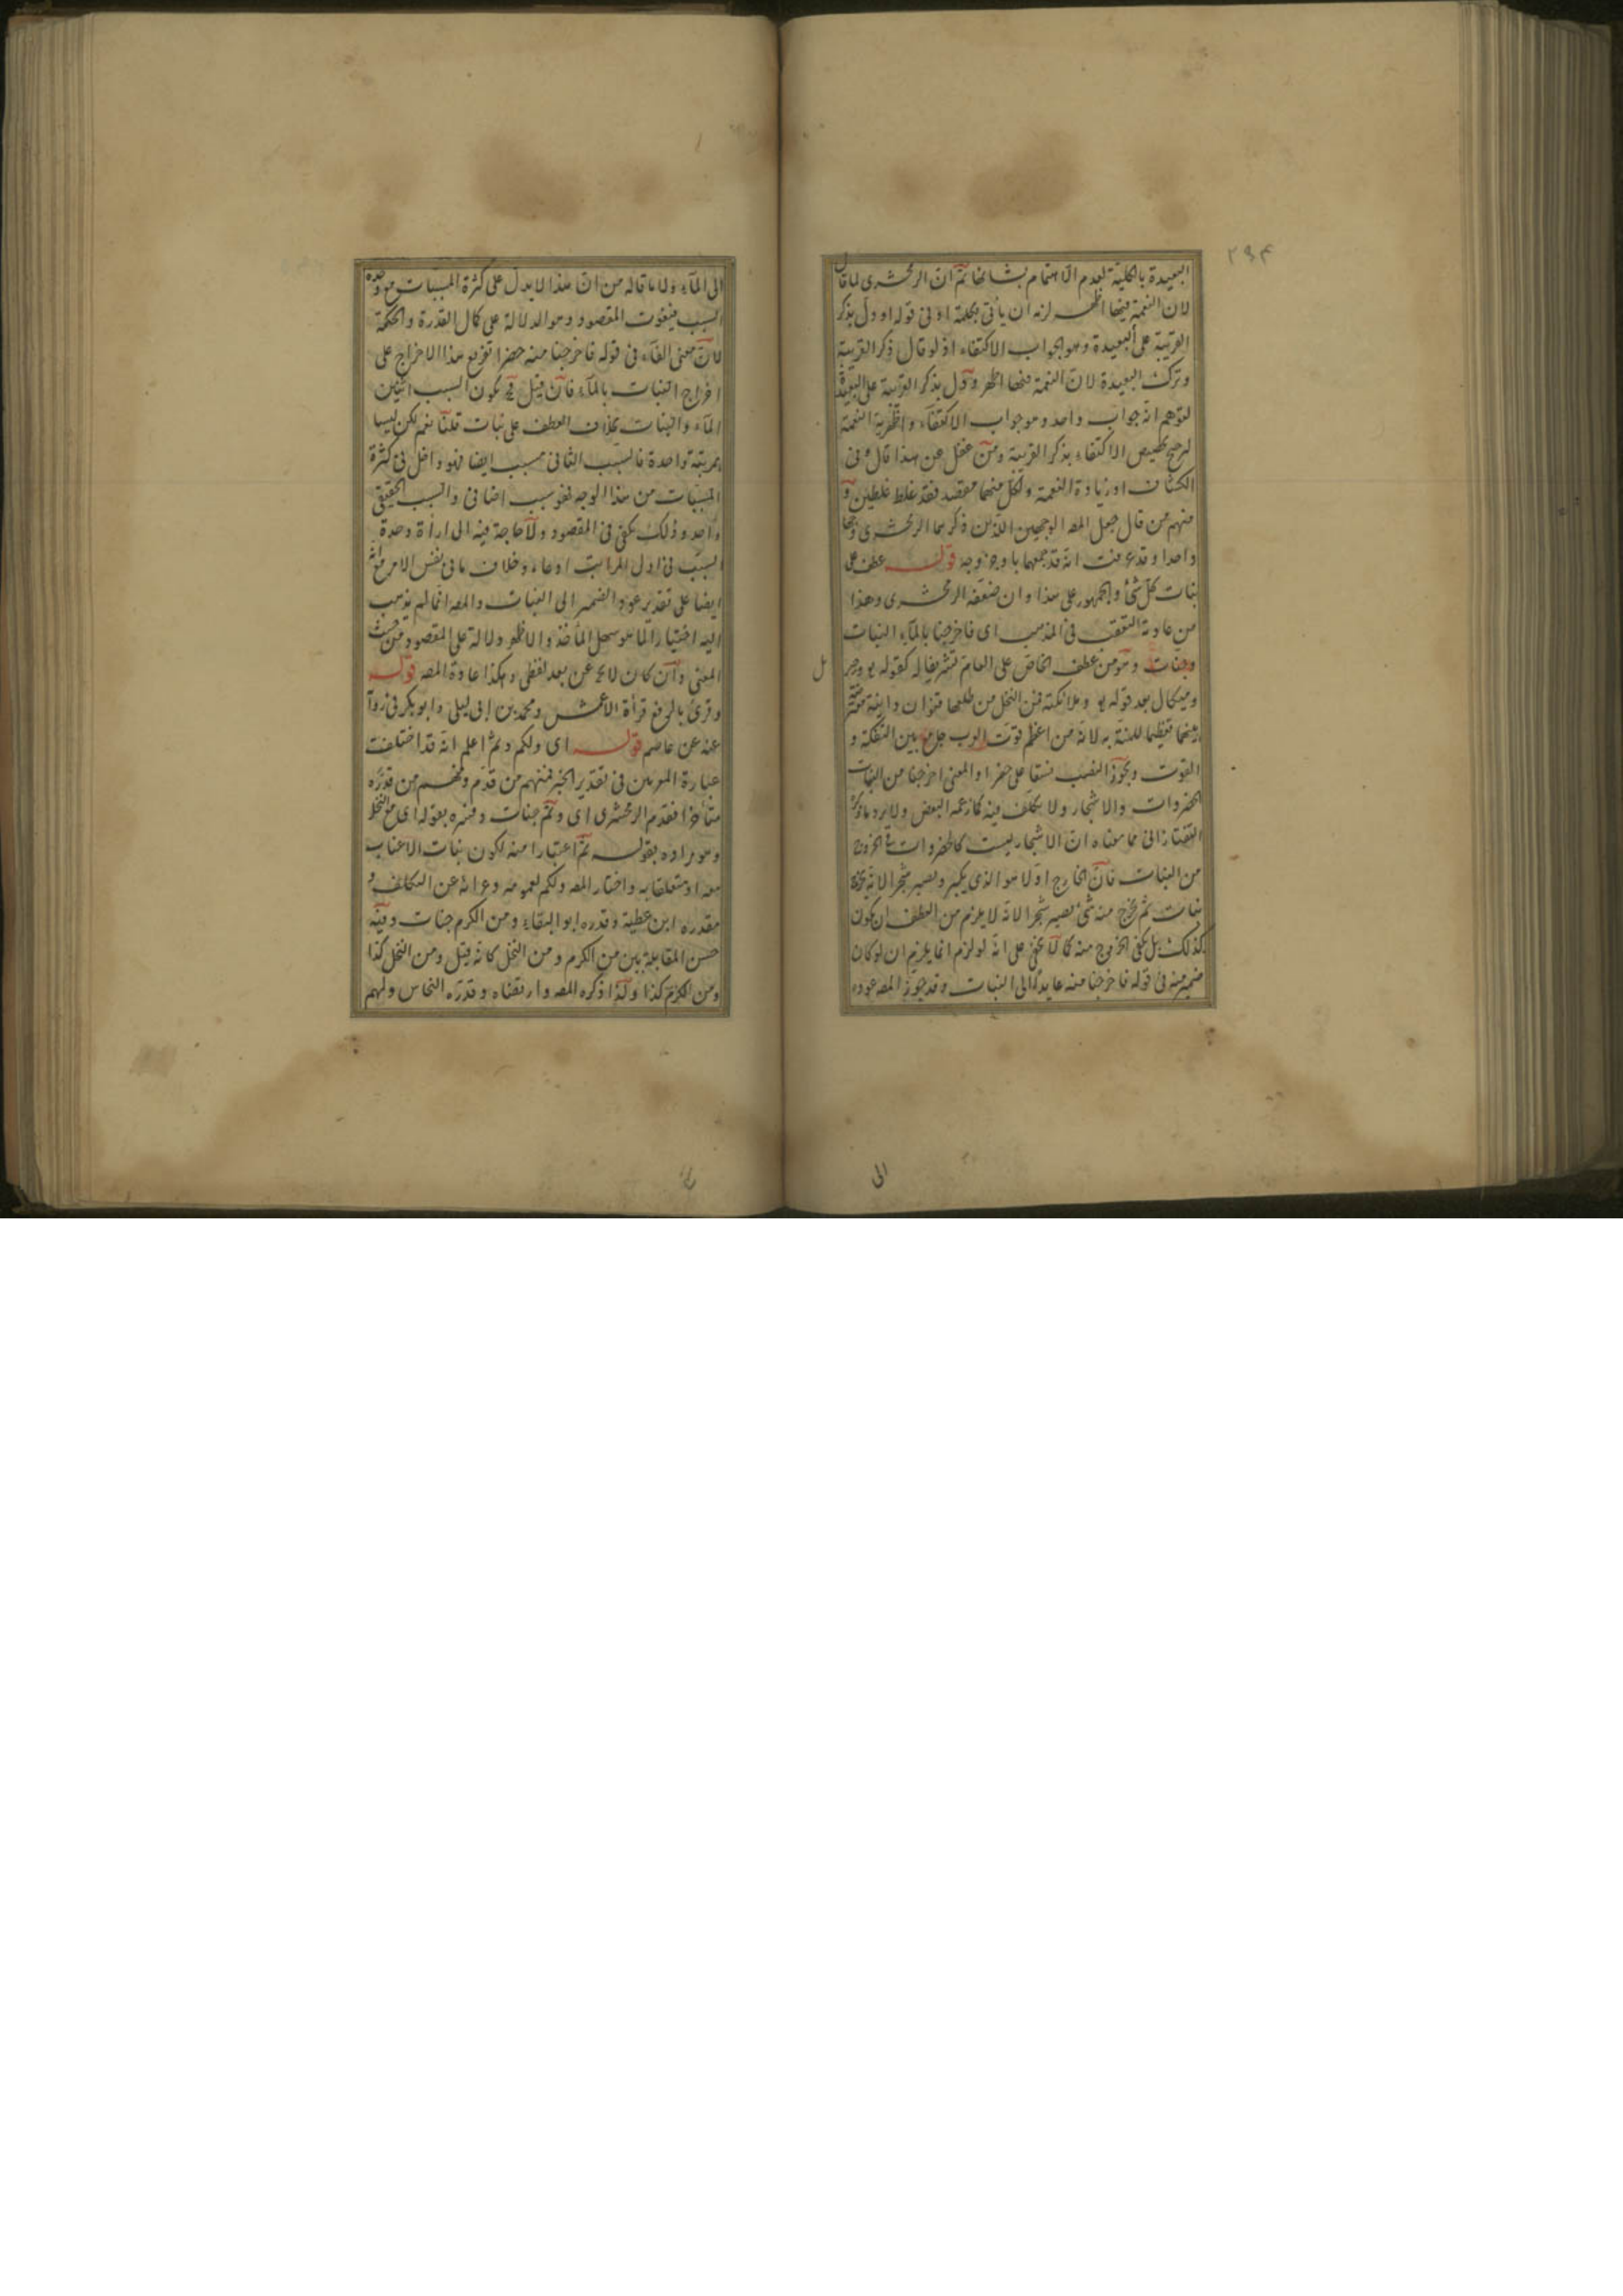 ٢٩٤
البعيدة بالكلية لعدم الاهتمام بشانها ثم ان الزمخشرى لما قال
لان النعمة فيها اظهر لزمه ان يأتى بكلمة او فى قوله او دل بذكر
القريبة على البعيدة وهو الجواب الاكتفاء اذ لو قال ذكر القريبة
وترك البعيدة لان النعمة فيها اظهر ودل بذكر القريبة على البعيدة
لتوهم انه جواب واحد وهو جواب الاكتفاء واظهرية النعمة
لترجح تخصيص الاكتفاء بذكر القريبة ومن غفل عن هذا قال وفى
الكشاف او زيادة النعمة ولكل منهما مقصد فقد غلط غلطين و
منهم من قال جعل المصـ الوجهين اللذين ذكرهما الزمخشرى وجها
واحدا وقد عرفت انه قد جمعهما باوجز وجه قوله عطف على
نبات كل شئ والجمهور على هذا وان ضعفه الزمخشرى وهذا
من عادته فى المذهب اى فاخرجنا بالماء النبات
وجنات وهو من عطف الخاص على العام تشريفا له كقوله
وميكال بعد قوله وملائكته فمن النخل من طلعها قنوان دانية
تعظيما للمنة به لانه من اعظم قوت العرب جامع بين التفكه و
القوت ويجوز النصب نسقا على خضرا والمعنى اخرجنا من النبات
الخضروات والاشجار ولا تكلف فيه كما زعمه البعض ولا يرد ما ذكره
التفتازانى مما معناه ان الاشجار ليست كالخضروات فى الخروج
من النبات فان الخارج اولا هو الذى يكبر ويصير شجرا لا انه يخرج
نبات ثم يخرج منه شئ يصير شجرا لانه لا يلزم من العطف ان يكون
كذلك بل يكفى الخروج منه كما لا يخفى على انه لو لزم انما يلزم ان لو كان
ضمير منه فى قوله فاخرجنا منه عايدا الى النبات وقد جوز المصـ عوده
الى
الى الماء ولا ما قاله من ان هذا لا يدل على كثرة المسببات مع وحدة
السبب فيفوت المقصود وهو الدلالة على كمال القدرة والحكمة
لان معنى الفاء فى قوله فاخرجنا منه خضرا تفريع هذا الاخراج على
اخراج النبات بالماء فان قيل فح يكون السبب اثنين
الماء والنبات بخلاف العطف على نبات قلنا نعم لكن ليسا
بمرتبة واحدة فالسبب الثانى مسبب ايضا فهو داخل فى كثرة
المسببات من هذا الوجه فهو سبب اضافى والسبب الحقيقى
واحد وذلك يكفى فى المقصود ولا حاجة فيه الى ارادة وحدة
السبب فى اول المراتب ادعاء وخلاف ما فى نفس الامر مع انه
ايضا على تقدير عود الضمير الى النبات والمصـ انما لم يذهب
اليه اختيارا لما هو سهل المأخذ والاظهر دلالة على المقصود من حيث
المعنى وان كان لا يخ عن بعد لفظى وهكذا عادة المصـ قوله
وقرئ بالرفع قرأة الاعمش ومحمد بن ابى ليلى وابو بكر فى رواية
عنه عن عاصم قوله اى ولكم وثم اعلم انه قد اختلفت
عبارة المعربين فى تقدير الخبر فمنهم من قدم ومنهم من قدره
متأخرا فقدم الزمخشرى اى وثم جنات وفسره بقوله اى مع النخل
ومراده بقوله ثم اعتبارا منه لكون نبات الاعناب
معه او متعلقا به واختار المصـ ولكم لعمومه وعرائه عن التكلف و
مقدره ابن عطية وقدره ابو البقاء ومن الكرم جنات وفيه
حسن المقابلة بين من الكرم ومن النخل كانه قيل ومن النخل كذا
ومن الكرم كذا ولذا ذكره المصـ وارتضاه وقدره النحاس ولهم